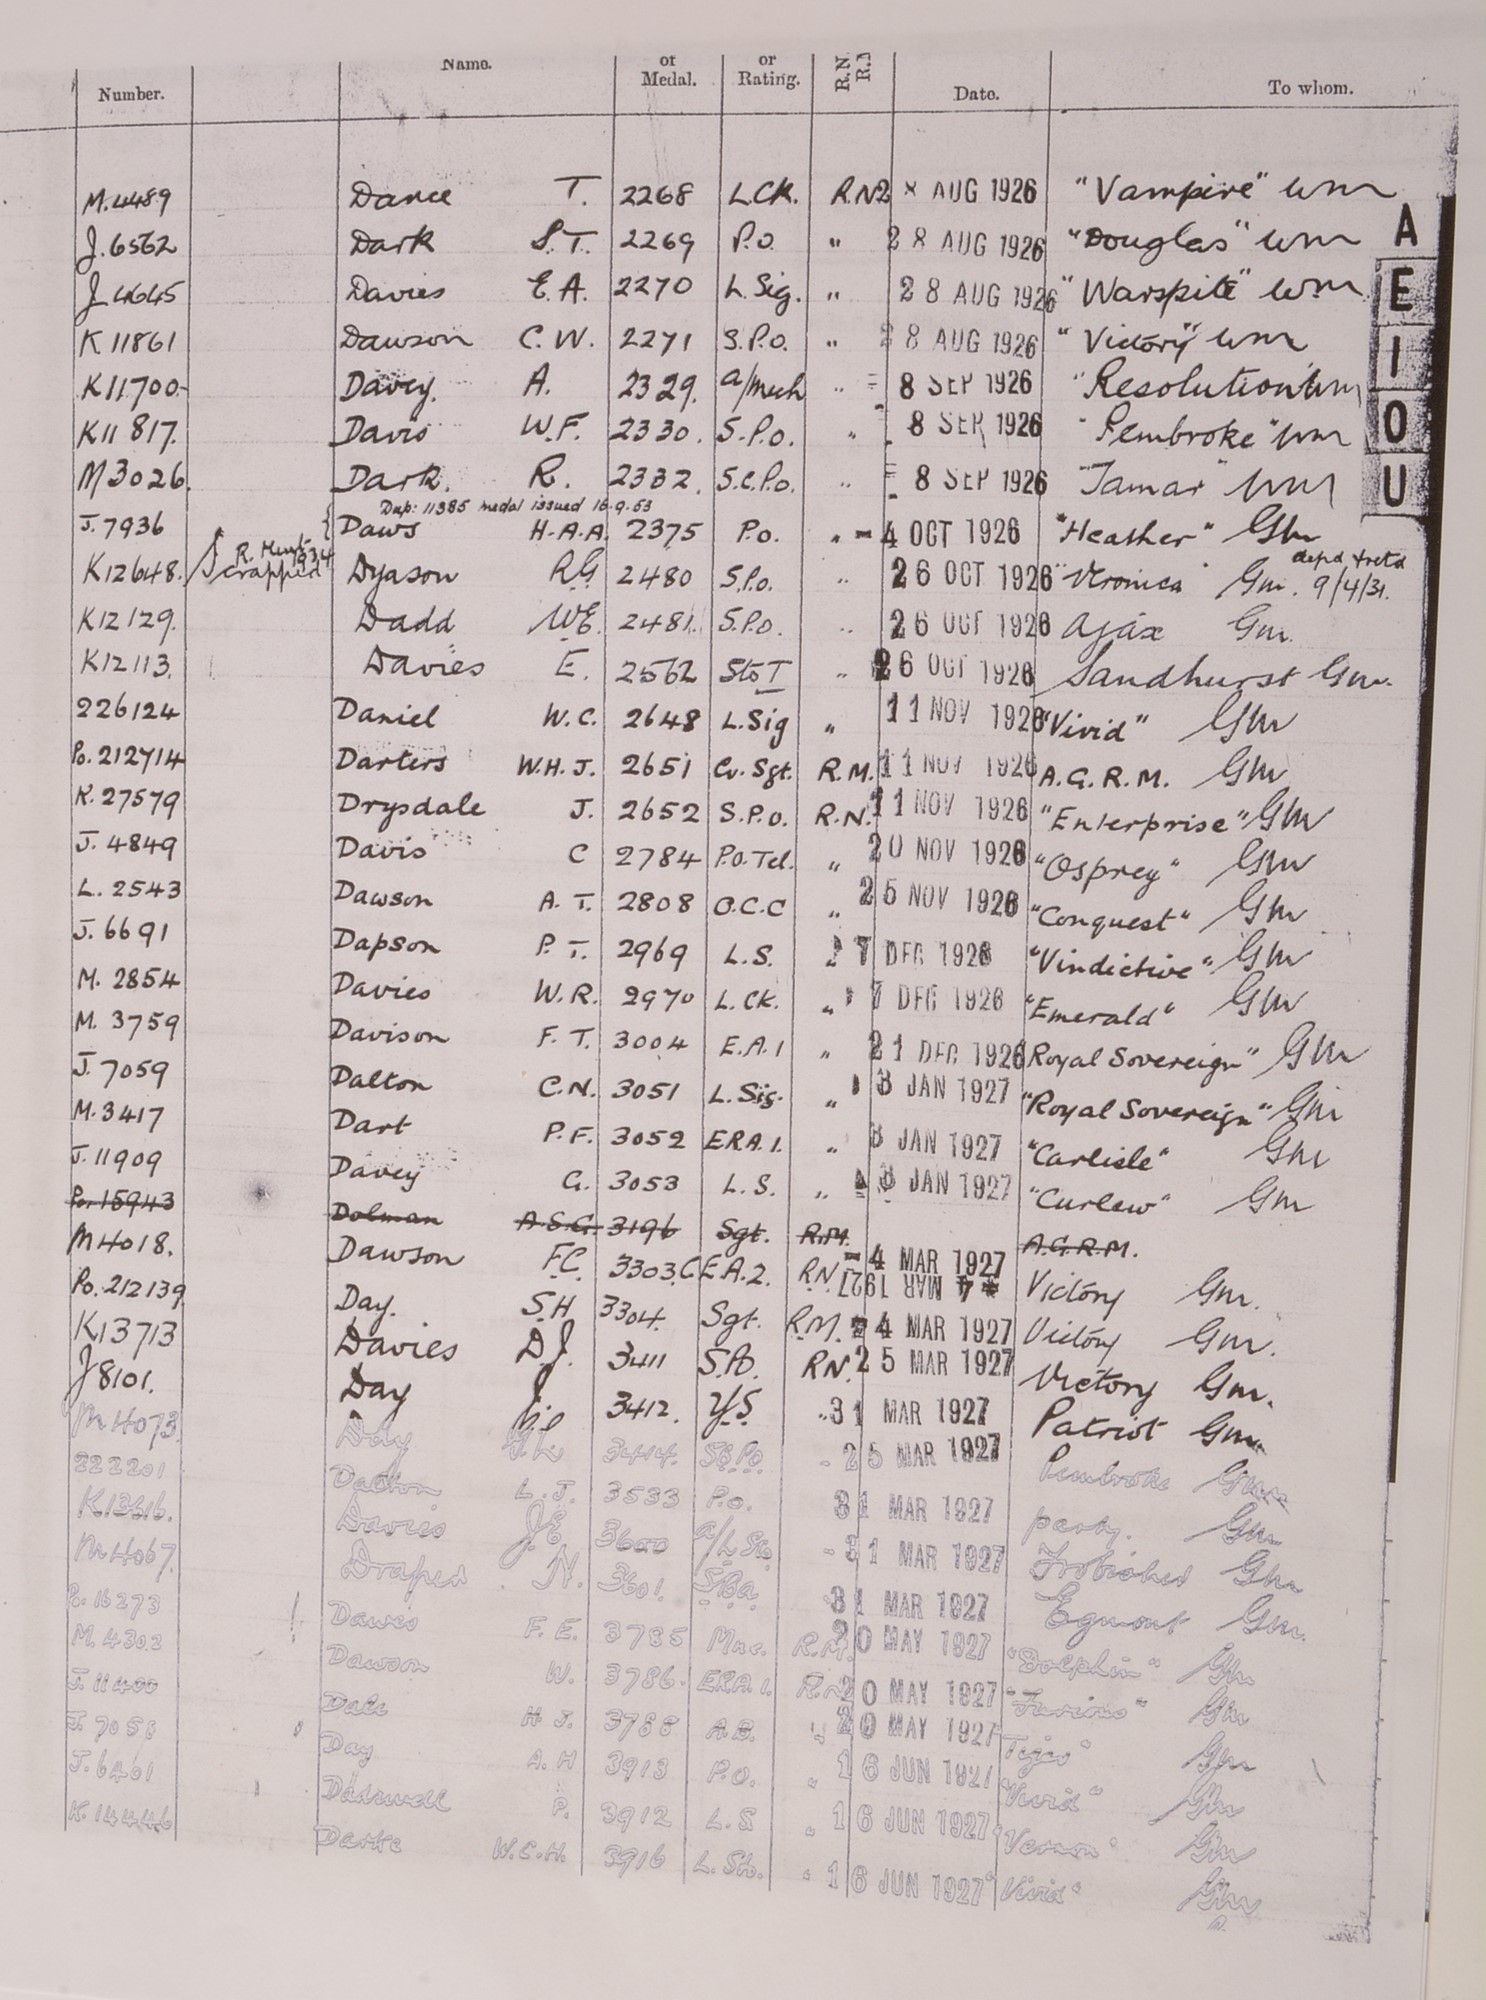 Number. Name. of Medal. or Rating. R.N. Date. To whom.
M.4489 Dance T. 2268 L.CK. R.N 2 8 AUG 1926 "Vampire" wm
J.6562 Dark S.T. 2269 P.O. " 2 8 AUG 1926 "Douglas" wm A
J.4645 Davies E.A. 2270 L.Sig. " 2 8 AUG 1926 "Warspite" wm E
K 11861 Dawson C.W. 2271 S.P.O. " 2 8 AUG 1926 "Victory" wm I
K11700 Davey. A. 2329. a/mech " 8 SEP 1926 "Resolution" wm
K11817. Davis W.F. 2330. S.P.O. " 8 SEP 1926 "Pembroke" wm O
M3026. Dark. R. 2332. S.C.P.O. " 8 SEP 1926 "Tamar" wm U
Dup: 11385 medal issued 16.9.53
J.7936 Daws H.A.A. 2375 P.O. " -4 OCT 1926 "Heather" Gm
K12648. scrapped 1934 Dyason R.G 2480 S.P.O. " 26 OCT 1926 "Veronica" Gm. 9/4/31.
K12129. Dadd W.E. 2481. S.P.O. " 26 OCT 1926 Ajax Gm.
K12113. Davies E. 2562 Sto T " 26 OCT 1926 Sandhurst Gm.
226124 Daniel W.C. 2648 L.Sig " 11 NOV 1926 "Vivid" Gm
Po.212714 Darters W.H.J. 2651 Cr.Sgt. R.M. 11 NOV 1926 A.G.R.M. Gm
K.27579 Drysdale J. 2652 S.P.O. R.N. 11 NOV 1926 "Enterprise" Gm
J.4849 Davis C 2784 P.O.Tel. " 20 NOV 1926 "Osprey" Gm
L.2543 Dawson A.T. 2808 O.C.C " 25 NOV 1926 "Conquest" Gm
J.6691 Dapson P.T. 2969 L.S. " 7 DEC 1926 "Vindictive" Gm
M.2854 Davies W.R. 2970 L.CK. " 7 DEC 1926 "Emerald" Gm
M.3759 Davison F.T. 3004 E.A.1 " 21 DEC 1926 "Royal Sovereign" Gm
J.7059 Dalton C.N. 3051 L.Sig. " 8 JAN 1927 "Royal Sovereign" Gm
M.3417 Dart P.F. 3052 ERA.1. " 8 JAN 1927 "Carlisle" Gm
J.11909 Davey G. 3053 L.S. " 8 JAN 1927 "Curlew" Gm
Po.15943 Dolman A.S.G. 3196 Sgt. R.M. A.G.R.M.
M4018. Dawson F.C. 3303. CEA.2. R.N. -4 MAR 1927 Victory Gm.
4 MAR 1927
Po.212139 Day. S.H 3304. Sgt. R.M. 4 MAR 1927 Victory Gm.
K13713 Davies D.J. 3411 S.P.O. R.N. 25 MAR 1927 Victory Gm.
J8101. Day J. 3412. Y.S. " 31 MAR 1927 Patriot Gm
M4073. Day 3414. " 25 MAR 1927 Pembroke Gm
222201 Dalton L.J. 3533 P.O. 31 MAR 1927 party. Gm
K13616. Davies J.E 3600 a/L.Sto. " 31 MAR 1927 Frobisher Gm
M4067. Draper N. 3601. 31 MAR 1927 Egmont Gm.
Po.16273 Dawes F.E. 3785 Mne. R.M. 20 MAY 1927 "Dolphin" Gm
M.4302 Dawson W. 3786. ERA.1. R.N. 20 MAY 1927 "Furious" Gm
J.11400 Dale H.J. 3788 A.B. " 20 MAY 1927 Gm
J.7058 Day A.H 3913 P.O. " 16 JUN 1927 "Vivid" Gm
J.6461 P. 3912 L.S " 16 JUN 1927 "Vernon" Gm
K.14446 Darke W.C.H. 3916 L.Sto. " 16 JUN 1927 "Vivid" Gm